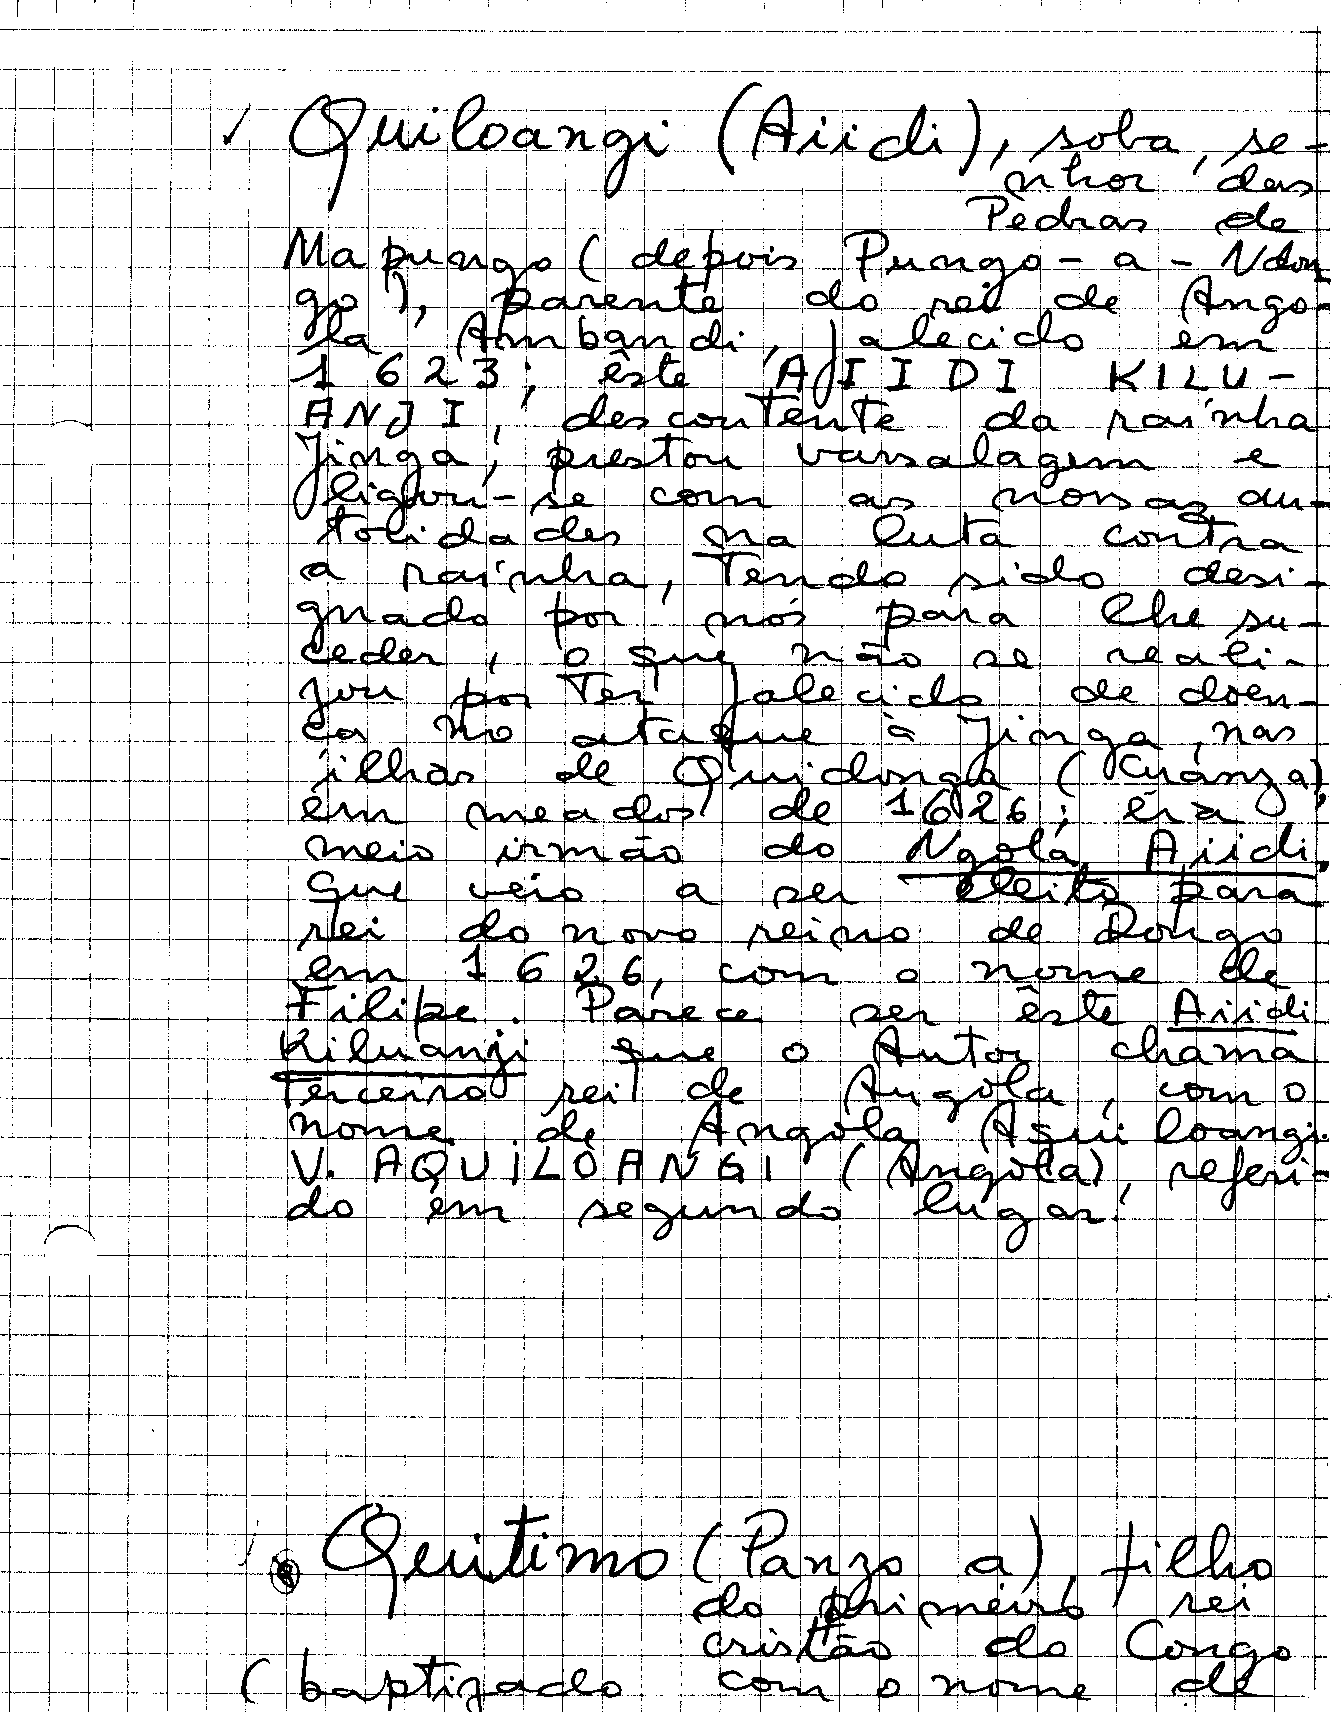 ✓ Quiloangi (Aiidi), soba, se-
nhor das
Pedras de
Mapungo (depois Pungo-a-Ndon
go), parente do rei de Ango-
la Ambandi, falecido em
1623; êste AIIDI KILU-
ANJI, descontente da rainha
Jinga, prestou vassalagem e
ligou-se com as nossas au-
toridades na luta contra
a rainha, tendo sido desi-
gnado por nós para lhe su-
ceder, o que não se reali-
zou por ter falecido de doen-
ça no ataque à Jinga, nas
ilhas de Quidonga (Cuanza),
em meados de 1626; era
meio irmão do Ngola Aiidi,
que veio a ser eleito para
rei do novo reino de Dongo
em 1626, com o nome de
Filipe. Parece ser êste Aiidi
Kiluanji que o Autor chama
terceiro rei de Angola, com o
nome de Angola Aquiloangi.
V. AQUILOANGI (Angola), referi-
do em segundo lugar.
Quitimo (Panzo a), filho
do primeiro rei
cristão do Congo
(baptizado com o nome de